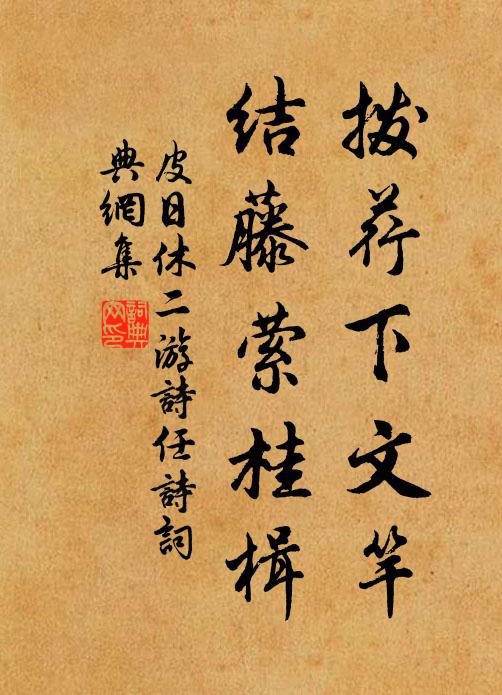 拨荇下文竿
结藤萦桂楫
皮日休二游詩任詩詞
典網集
詞典
网印